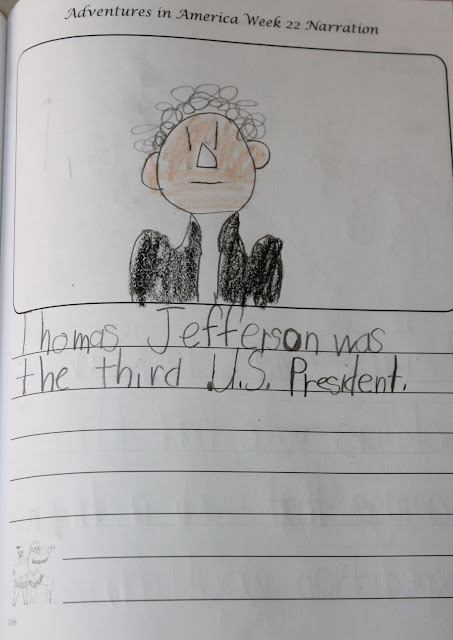 Adventures in America Week 22 Narration
Thomas Jefferson was
the third U.S. President.